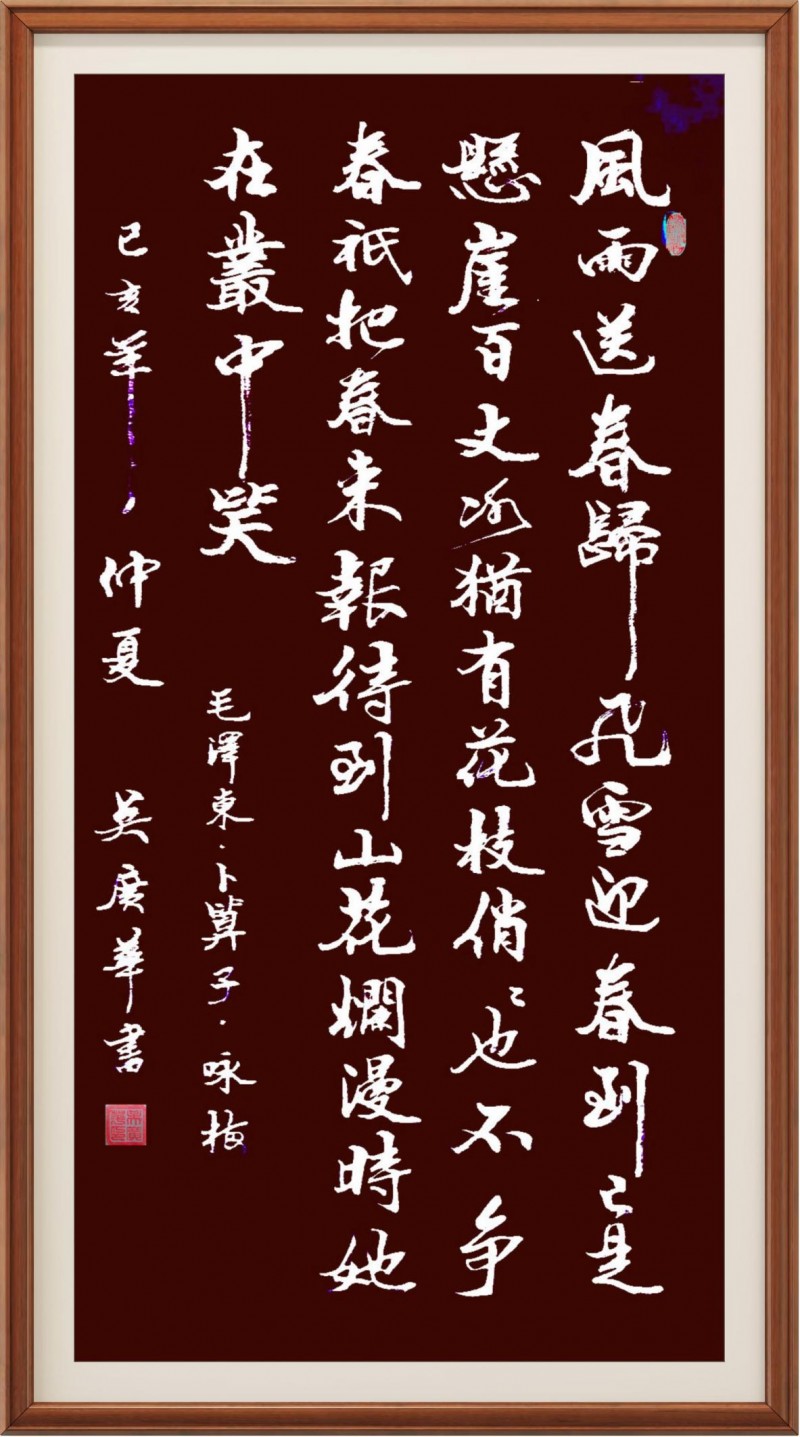 風雨送春歸飛雪迎春到已是
懸崖百丈冰猶有花枝俏〻也不争
春祇把春来報待到山花爛漫時她
在叢中笑
毛澤東·卜算子·咏梅
己亥年仲夏 吴廣華書